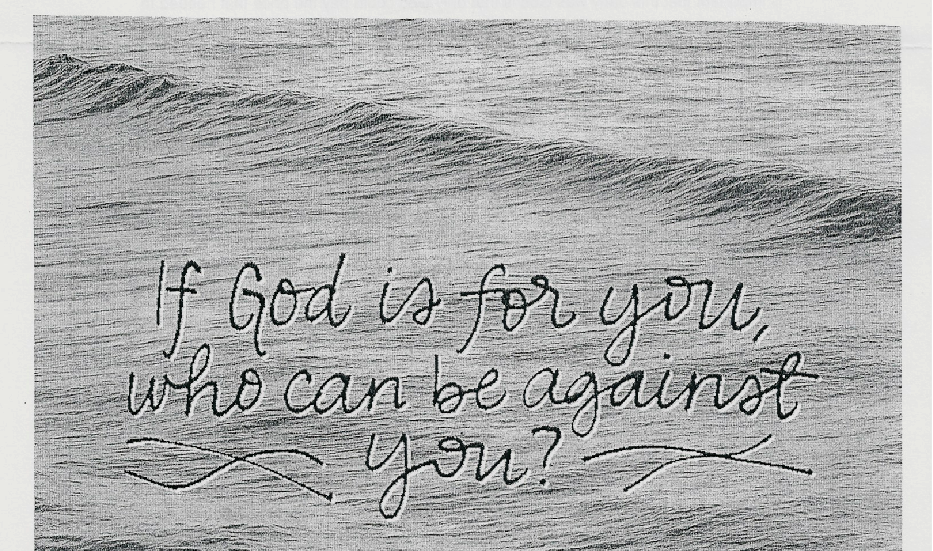 If God is for you,
who can be against
you?